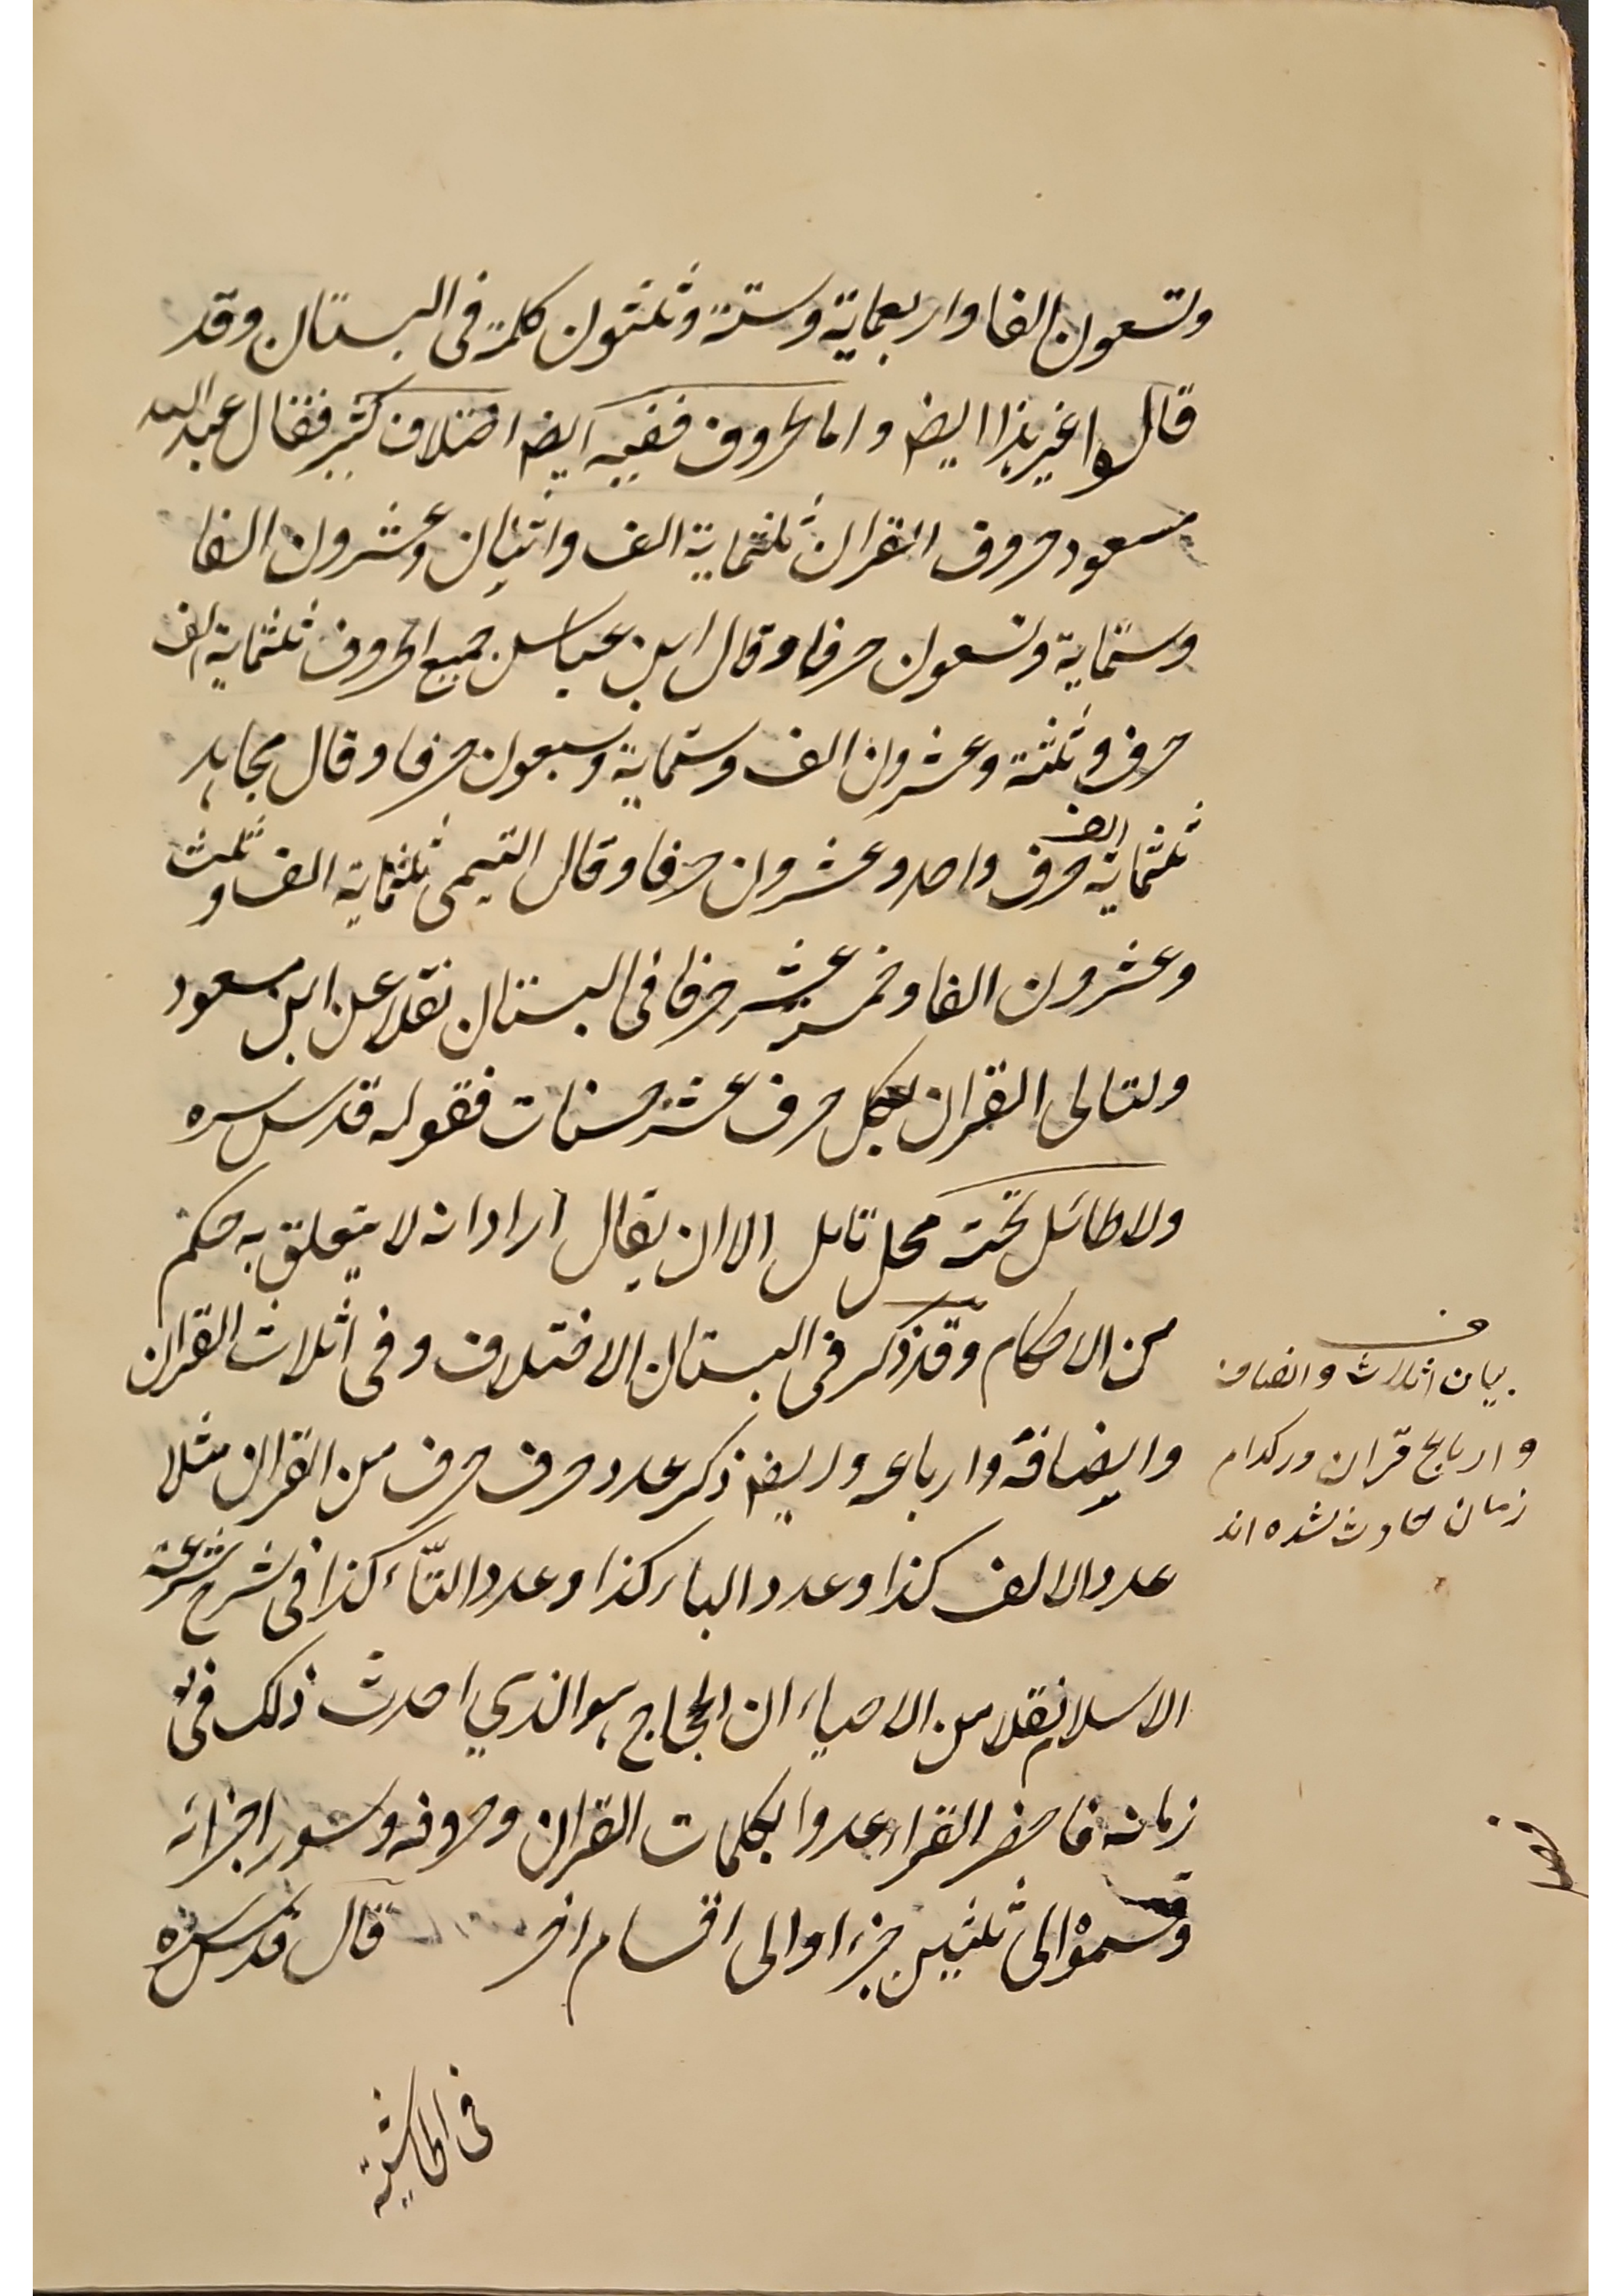 وتسعون الفا واربعماية وستة وثلثون كلمة فى البستان وقد
قالوا غير هذا ايضا واما الحروف ففيه ايضا اختلاف كثير فقال عبد الله
مسعود حروف القران ثلثماية الف واثنان وعشرون الفا
وستماية وتسعون حرفا وقال ابن عباس جميع الحروف ثلثماية الف
حرف وثلثة وعشرون الف وستماية وسبعون حرفا وقال مجاهد
ثلثماية الف حرف واحد وعشرون حرفا وقال التيمى ثلثماية الف وثلث
وعشرون الفا وخمسة عشر حرفا فى البستان نقلا عن ابن مسعود
ولتالى القران بكل حرف عشر حسنات فقوله قدس سره
ولا طائل تحته محل تامل الا ان يقال اراد انه لا يتعلق به حكم
من الاحكام وقد ذكر فى البستان الاختلاف وفى اثلاث القران
وايضافه وارباعه وايضا ذكر عدد حرف حرف من القران مثلا
عدد الالف كذا وعدد الباء كذا وعدد التاء كذا فى شرح شرعة
الاسلام نقلا من الاحياء ان الحجاج هو الذي احدث ذلك فى
زمانه فاحضر القراء عدوا بكلمات القران وحروفه وسور اجزائه
وقسموا الى ثلثين جزءا والى اقسام اخر قال قدس سره
فى الحاشية
ف
بيان اثلاث وانصاف
وارباع قران در كدام
زمان حادث شده اند